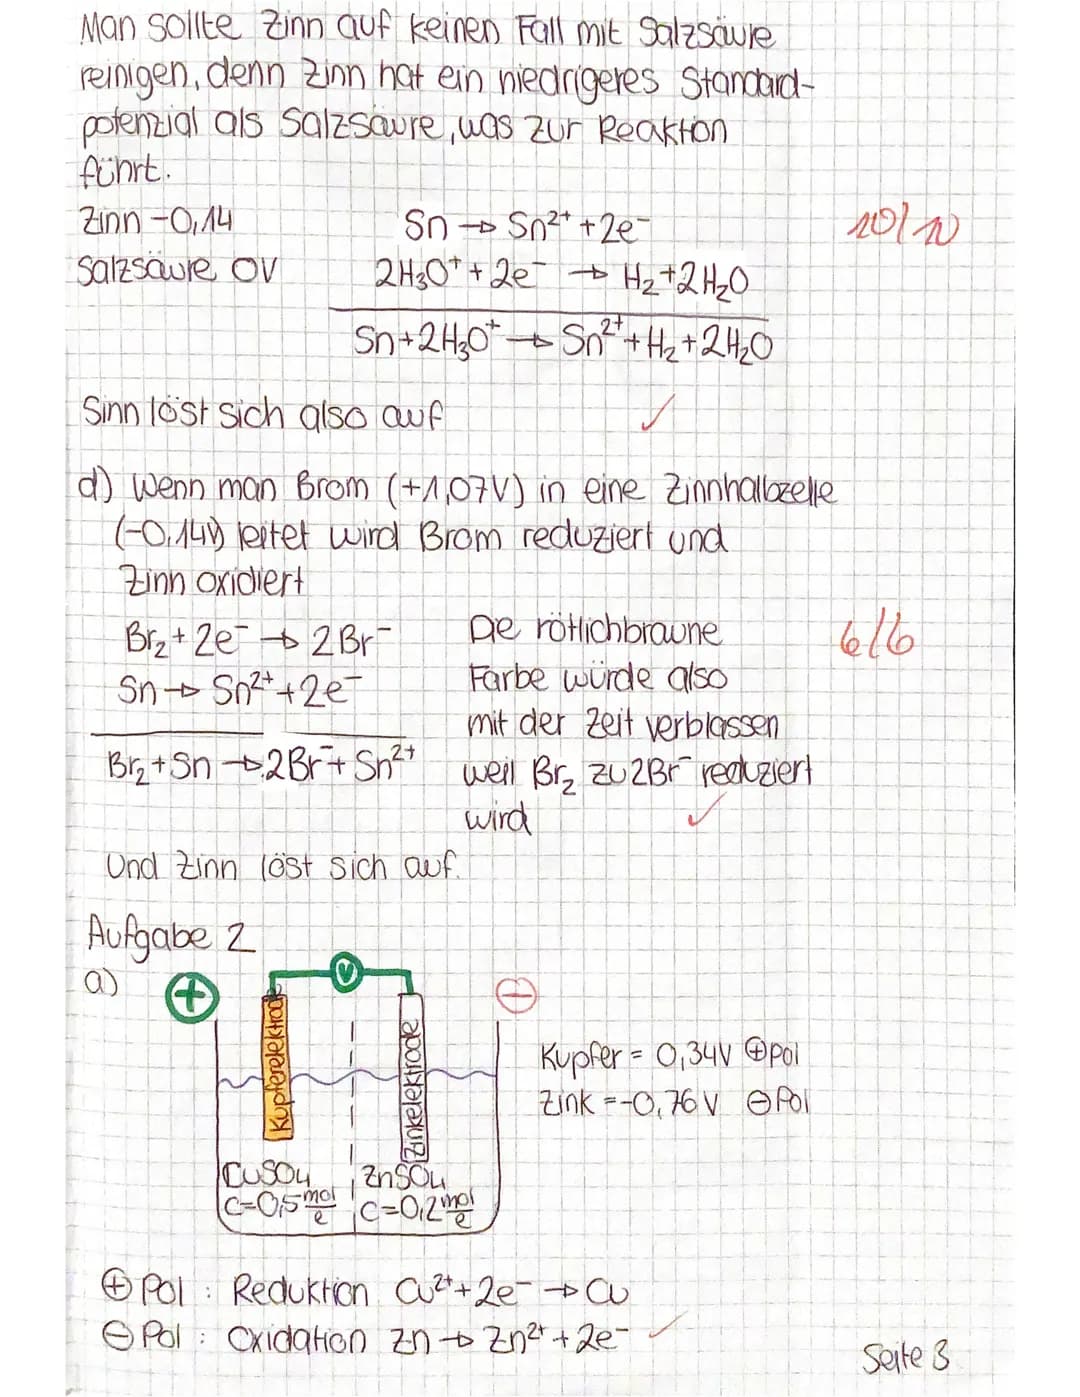 Man sollte Zinn auf keinen Fall mit Salzsäure
reinigen, denn Zinn hat ein niedrigeres Standard-
potenzial als Salzsäure, was zur Reaktion
führt.
Zinn -0,14 Sn → Sn²⁺ + 2e⁻ 10/10
Salzsäure 0V 2H₃O⁺ + 2e⁻ → H₂ + 2H₂O
Sn + 2H₃O⁺ → Sn²⁺ + H₂ + 2H₂O
Sinn löst sich also auf ✓
d) Wenn man Brom (+1,07V) in eine Zinnhalbzelle
(-0,14V) leitet wird Brom reduziert und
Zinn oxidiert
Br₂ + 2e⁻ → 2Br⁻ Die rötlichbraune 6/6
Sn → Sn²⁺ + 2e⁻ Farbe würde also
mit der Zeit verblassen
Br₂ + Sn → 2Br⁻ + Sn²⁺ weil Br₂ zu 2Br⁻ reduziert
wird ✓
Und Zinn löst sich auf.
Aufgabe 2
a) + V -
Kupferelektrode
Zinkelektrode
Kupfer = 0,34V ⊕Pol
Zink = -0,76V ⊖Pol
CuSO₄ ZnSO₄
c=0,5 mol/l c=0,2 mol/l
⊕ Pol : Reduktion Cu²⁺ + 2e⁻ → Cu
⊖ Pol : Oxidation Zn → Zn²⁺ + 2e⁻ ✓
Seite 3